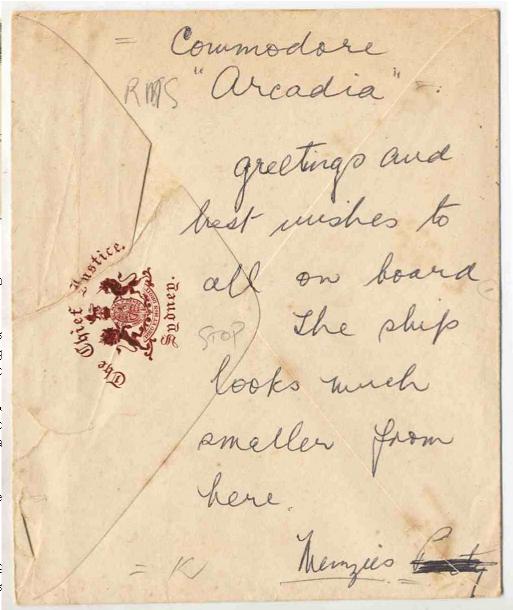 = Commodore
RMS "Arcadia" =
greetings and
best wishes to
all on board
STOP The ship
looks much
smaller from
here.
Menzies
= K
The Chief Justice.
Sydney.